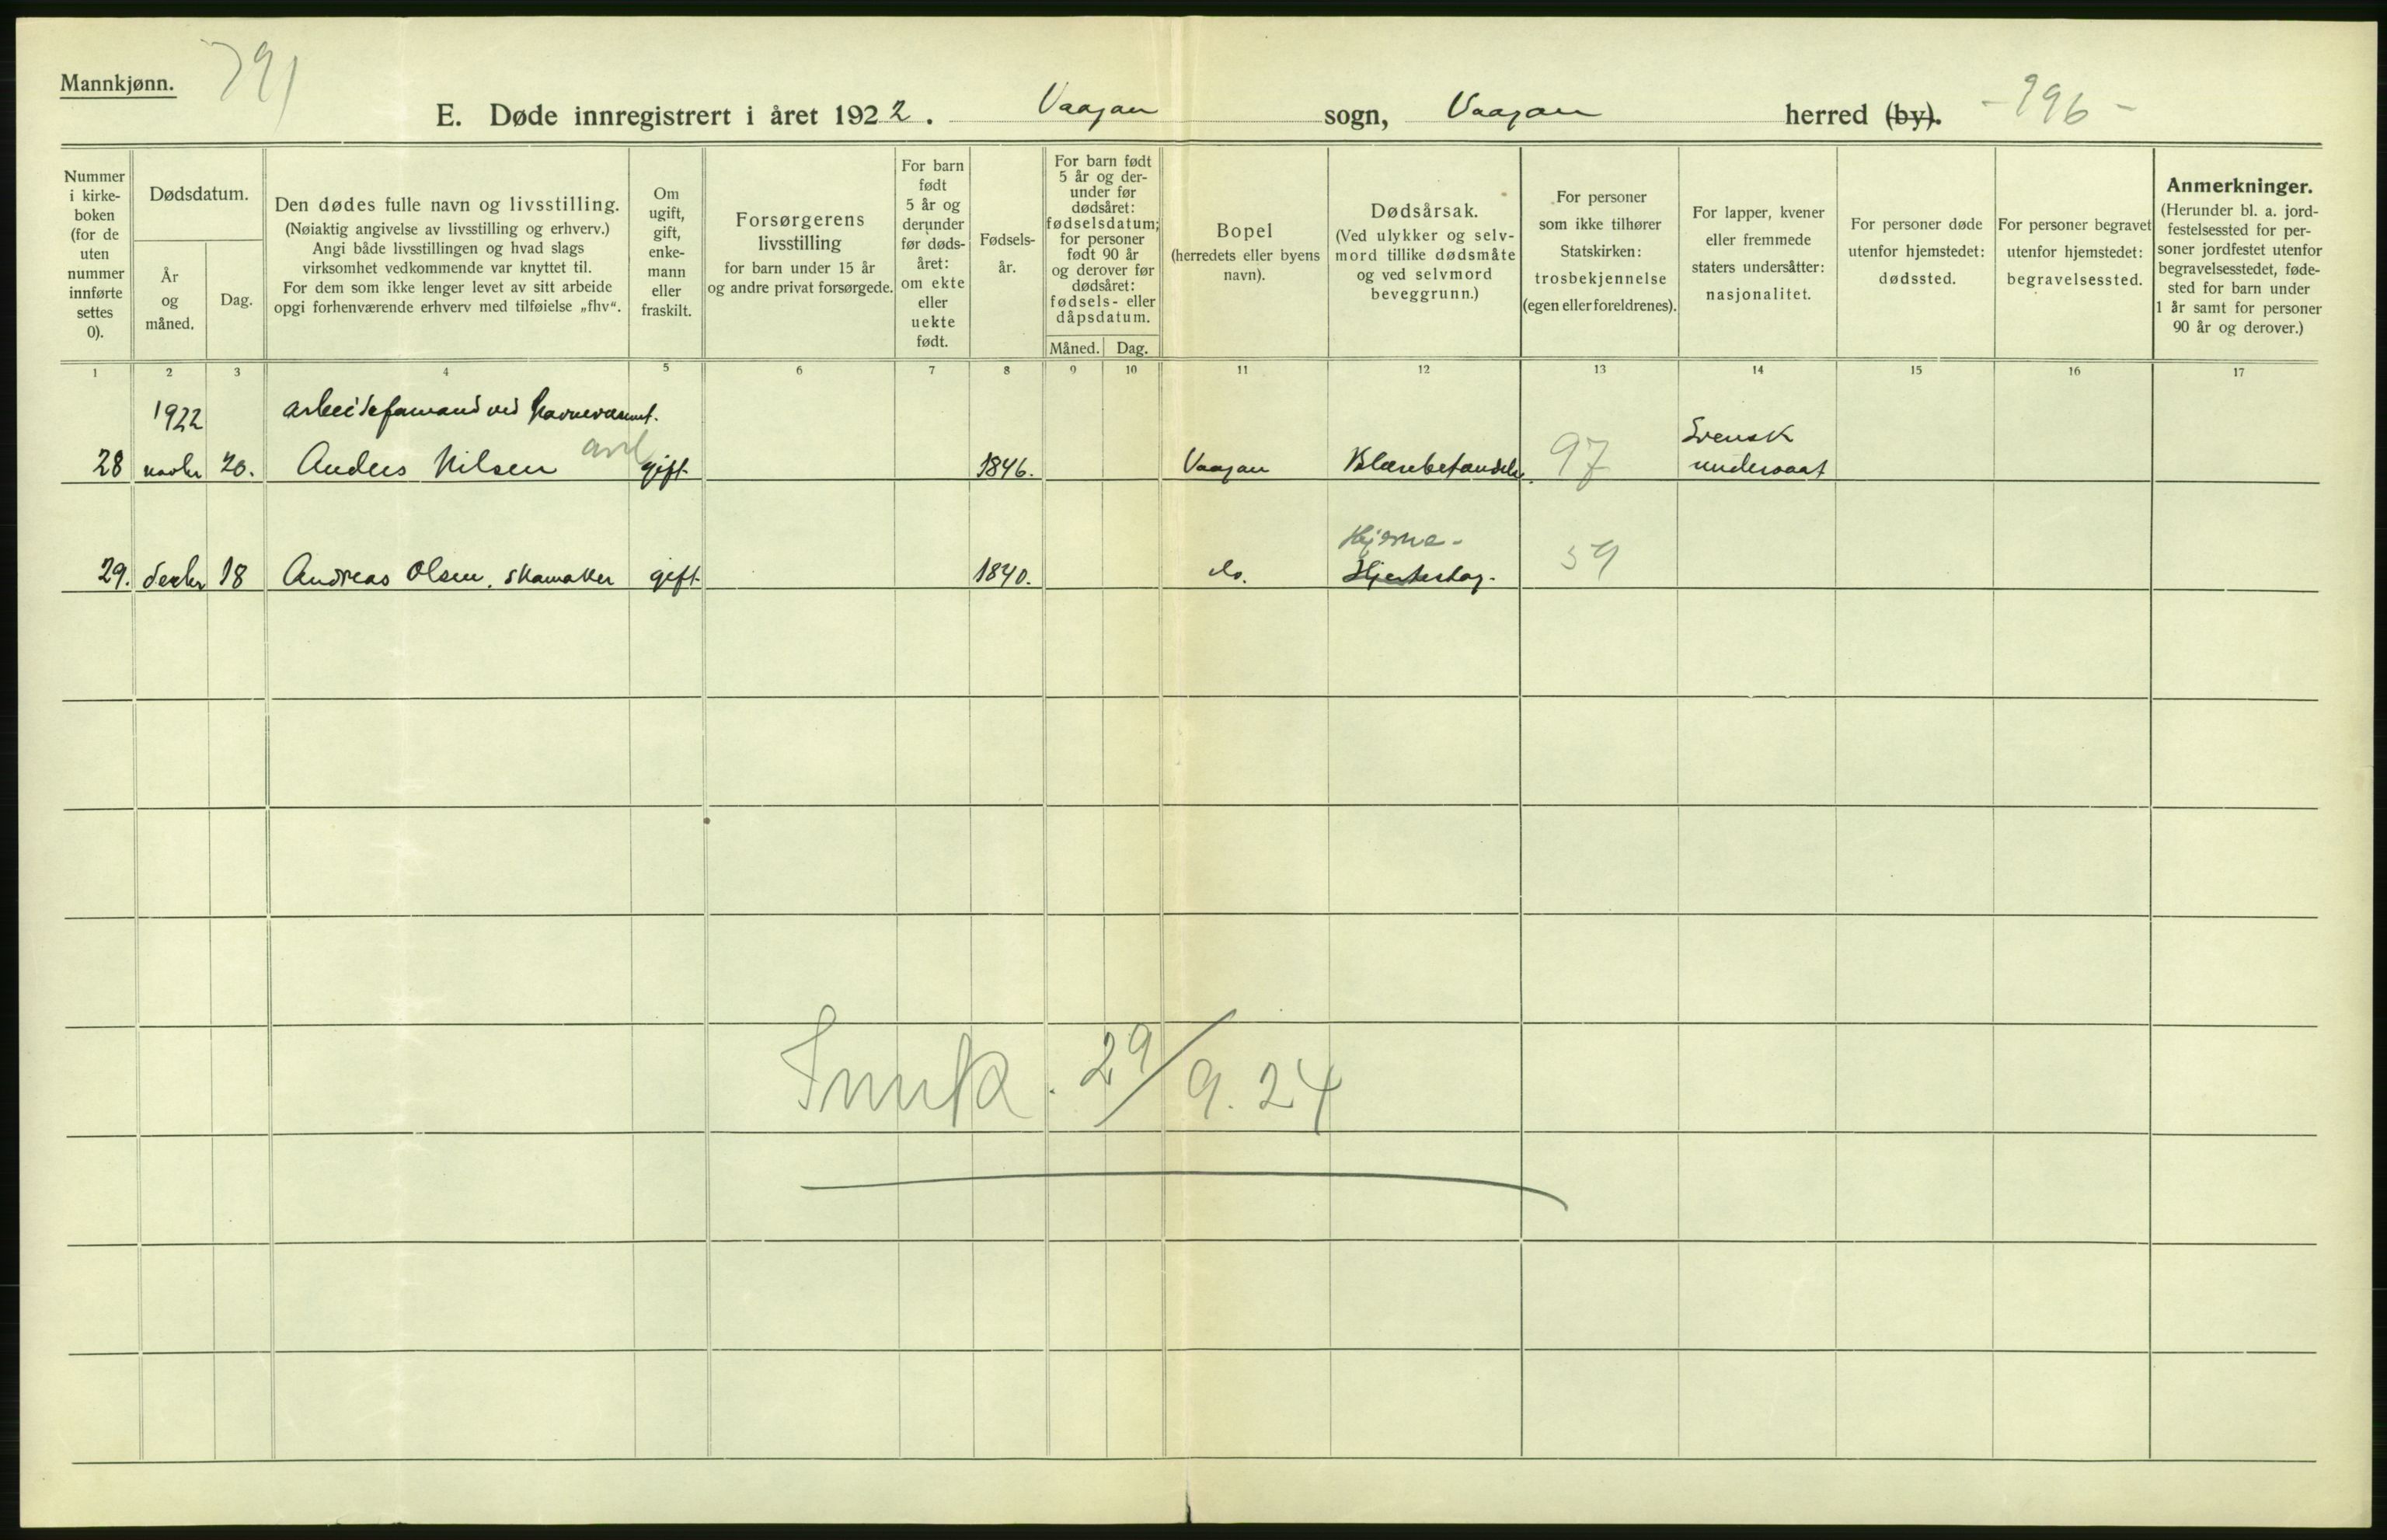 Mannkjønn.
791
E. Døde innregistrert i året 1922. Vaagan sogn, Vaagan herred (by).
-296-
Nummer i kirke-boken (for de uten nummer innførte settes 0).
Dødsdatum.
År og måned.
Dag.
Den dødes fulle navn og livsstilling.
(Nøiaktig angivelse av livsstilling og erhverv.)
Angi både livsstillingen og hvad slags
virksomhet vedkommende var knyttet til.
For dem som ikke lenger levet av sitt arbeide
opgi forhenværende erhverv med tilføielse „fhv“.
Om ugift, gift, enke-mann eller fraskilt.
Forsørgerens
livsstilling
for barn under 15 år
og andre privat forsørgede.
For barn født 5 år og derunder før døds-året: om ekte eller uekte født.
Fødsels-år.
For barn født 5 år og der-under før dødsåret: fødselsdatum; for personer født 90 år og derover før dødsåret: fødsels- eller dåpsdatum.
Måned.
Dag.
Bopel
(herredets eller byens
navn).
Dødsårsak.
(Ved ulykker og selv-
mord tillike dødsmåte
og ved selvmord
beveggrunn.)
For personer
som ikke tilhører
Statskirken:
trosbekjennelse
(egen eller foreldrenes).
For lapper, kvener
eller fremmede
staters undersåtter:
nasjonalitet.
For personer døde
utenfor hjemstedet:
dødssted.
For personer begravet
utenfor hjemstedet:
begravelsessted.
Anmerkninger.
(Herunder bl. a. jord-
festelsessted for per-
soner jordfestet utenfor
begravelsesstedet, føde-
sted for barn under
1 år samt for personer
90 år og derover.)
1 2 3 4 5 6 7 8 9 10 11 12 13 14 15 16 17
1922 arbeidsformand ved havnevæsenet. Svensk
28 novbr 20. Anders Nilsen gift 1846. Vaagan Blærebetændelse. 97 undersaat
Hjerne-
29. decbr 18 Andreas Olsen, skomaker gift 1840. do. Hjerteslag. 59
29/9.24